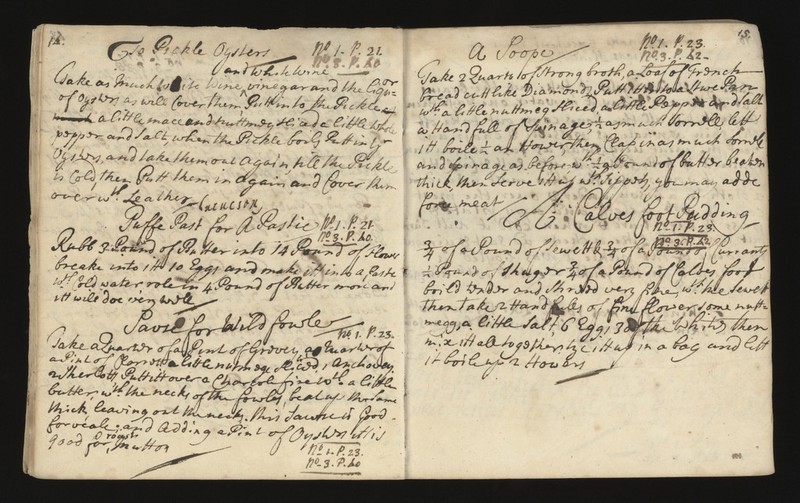 12.
To Pickle Oysters No 1. P. 21.
No 3. P. 40
and white wine
Take as Much White Wine, vinegar and the Liquor
of oysters as will Cover them Putt into the Pickle
a little mace and nuttmeg sliced a little whole
pepper and salt, when the Pickle boils Putt in yr
Oysters, and take them out Again, till the Pickle
is Cold, then Putt them in again, and Cover them
over wth Leather
Puffe Past for A Pastie No 1. P. 21
No 3. P. 40.
Rubb 3 Pound of Butter into 14 Pound of flower
breake into itt 10 Eggs and make itt into a Paste
wth Cold water, role in 4 Pound of Butter more and
itt will doe very well
Savce for Wild fowle No 1. P. 23.
Take a Quarter of a Pint of Gravey, a Quarter of
a Pint of a little nutmegg sliced, 1 Anchovey,
2 Putt itt over a Charcole fire wth a little
butter, wth the necks of the fowles, beat up
thick leaving out the necks. this Sauce is Good
for veale; and Adding a Pint of Oysters itt is
good for roast Mutton
No 1. P. 23.
No 3. P. 40
13.
A Soope No 1. P. 23.
No 3. P. 42.
Take 2 Quarts of Strong broth, a Loaf of French
bread cutt like Diamond, Putt itt into a Stwe Pan
wth a little nuttmeg sliced a little Pepper and Salt
a Hand full of Spinage, ½ as much Sorrell lett
itt boile ½ an Hower, then Clap in as much Sorrell
and spinage as before wth ½ a Pound of butter beaten
thick, then serve itt up wth Sippets, you may adde
forc meat
A Calves foot Pudding
No 1. P. 23.
No 3. P. 42.
¾ of a Pound of Sewett & ¾ of a Pound of Currants
½ Pound of Shuger ¾ of a Pound of Calves foot
boild tender and Shredd very fine wth the Sewett
then take 2 Hand fules of fine flower, some nutt=
megg, a little Salt, 6 Eggs 3 of the whites, then
mix itt all together tye itt up in a bag and lett
it boile up 2 Howers